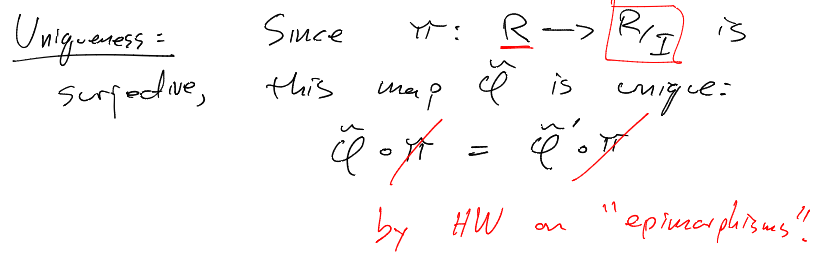 Uniqueness: Since π: R → R/I is
surjective, this map φ̃ is unique:
φ̃ ∘ π = φ̃' ∘ π
by HW on "epimorphisms".